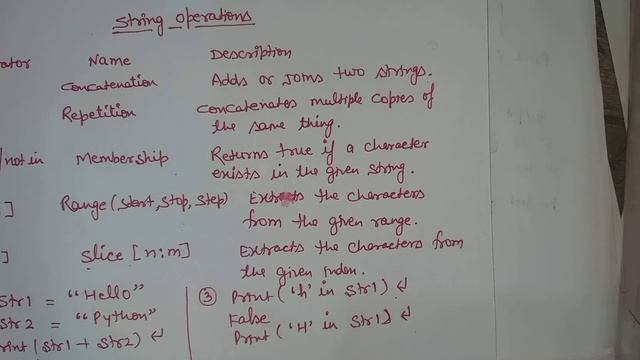 String operations
ator Name Description
Concatenation Adds or Joins two strings.
Repetition Concatenates multiple copies of
the same thing.
/not in Membership Returns true if a character
exists in the given string.
] Range (start, stop, step) Extracts the characters
from the given range.
] Slice [n:m] Extracts the characters from
the given index.
Str1 = "Hello"
Str2 = "Python"
rint (Str1 + Str2) ↵
③ Print ('h' in Str1) ↵
False
Print ('H' in Str1) ↵